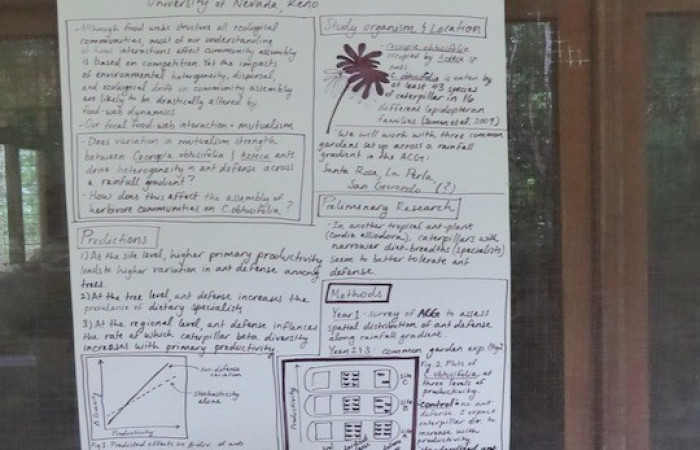 University of Nevada, Reno
- Although food webs structure all ecological
communities, most of our understanding
of how interactions affect community assembly
is based on competition. Yet the impacts
of environmental heterogeneity, dispersal,
and ecological drift on community assembly
are likely to be drastically altered by
food-web dynamics.
- Our focal food-web interaction = mutualism
- Does variation in mutualism strength
between Cecropia obtusifolia / Azteca ants
drive heterogeneity in ant defense across
a rainfall gradient?
- How does this affect the assembly of
herbivore communities on C. obtusifolia?
Predictions
1) At the site level, higher primary productivity
leads to higher variation in ant defense among
trees.
2) At the tree level, ant defense increases the
prevalence of dietary specialists
3) At the regional level, ant defense influences
the rate at which caterpillar beta diversity
increases with primary productivity
Ant-defense
variation
Stochasticity
alone
Productivity
Fig 1. Predicted effects on β-div. of ants
Study organism & Location
- Cecropia obtusifolia
occupied by Azteca sp
ants.
C. obtusifolia is eaten by
at least 43 species
of caterpillar in 16
different lepidopteran
families.
- We will work with three common
gardens set up across a rainfall
gradient in the ACG:
Santa Rosa, La Perla,
San Gerardo (?)
Preliminary Research
- In another tropical ant-plant
(Cordia alliodora), caterpillars with
narrower diet-breadths (specialists)
seem to better tolerate ant
defense.
Methods
Year 1: survey of ACG to assess
spatial distribution of ant defense
along rainfall gradient
Year 2 & 3: common garden exp.
Productivity
Site
C
Site
B
Site
A
Fig. 2. Plots of
C. obtusifolia at
three levels of
productivity.
"control" = no ant
defense. I expect
caterpillar div. to
increase with
productivity.